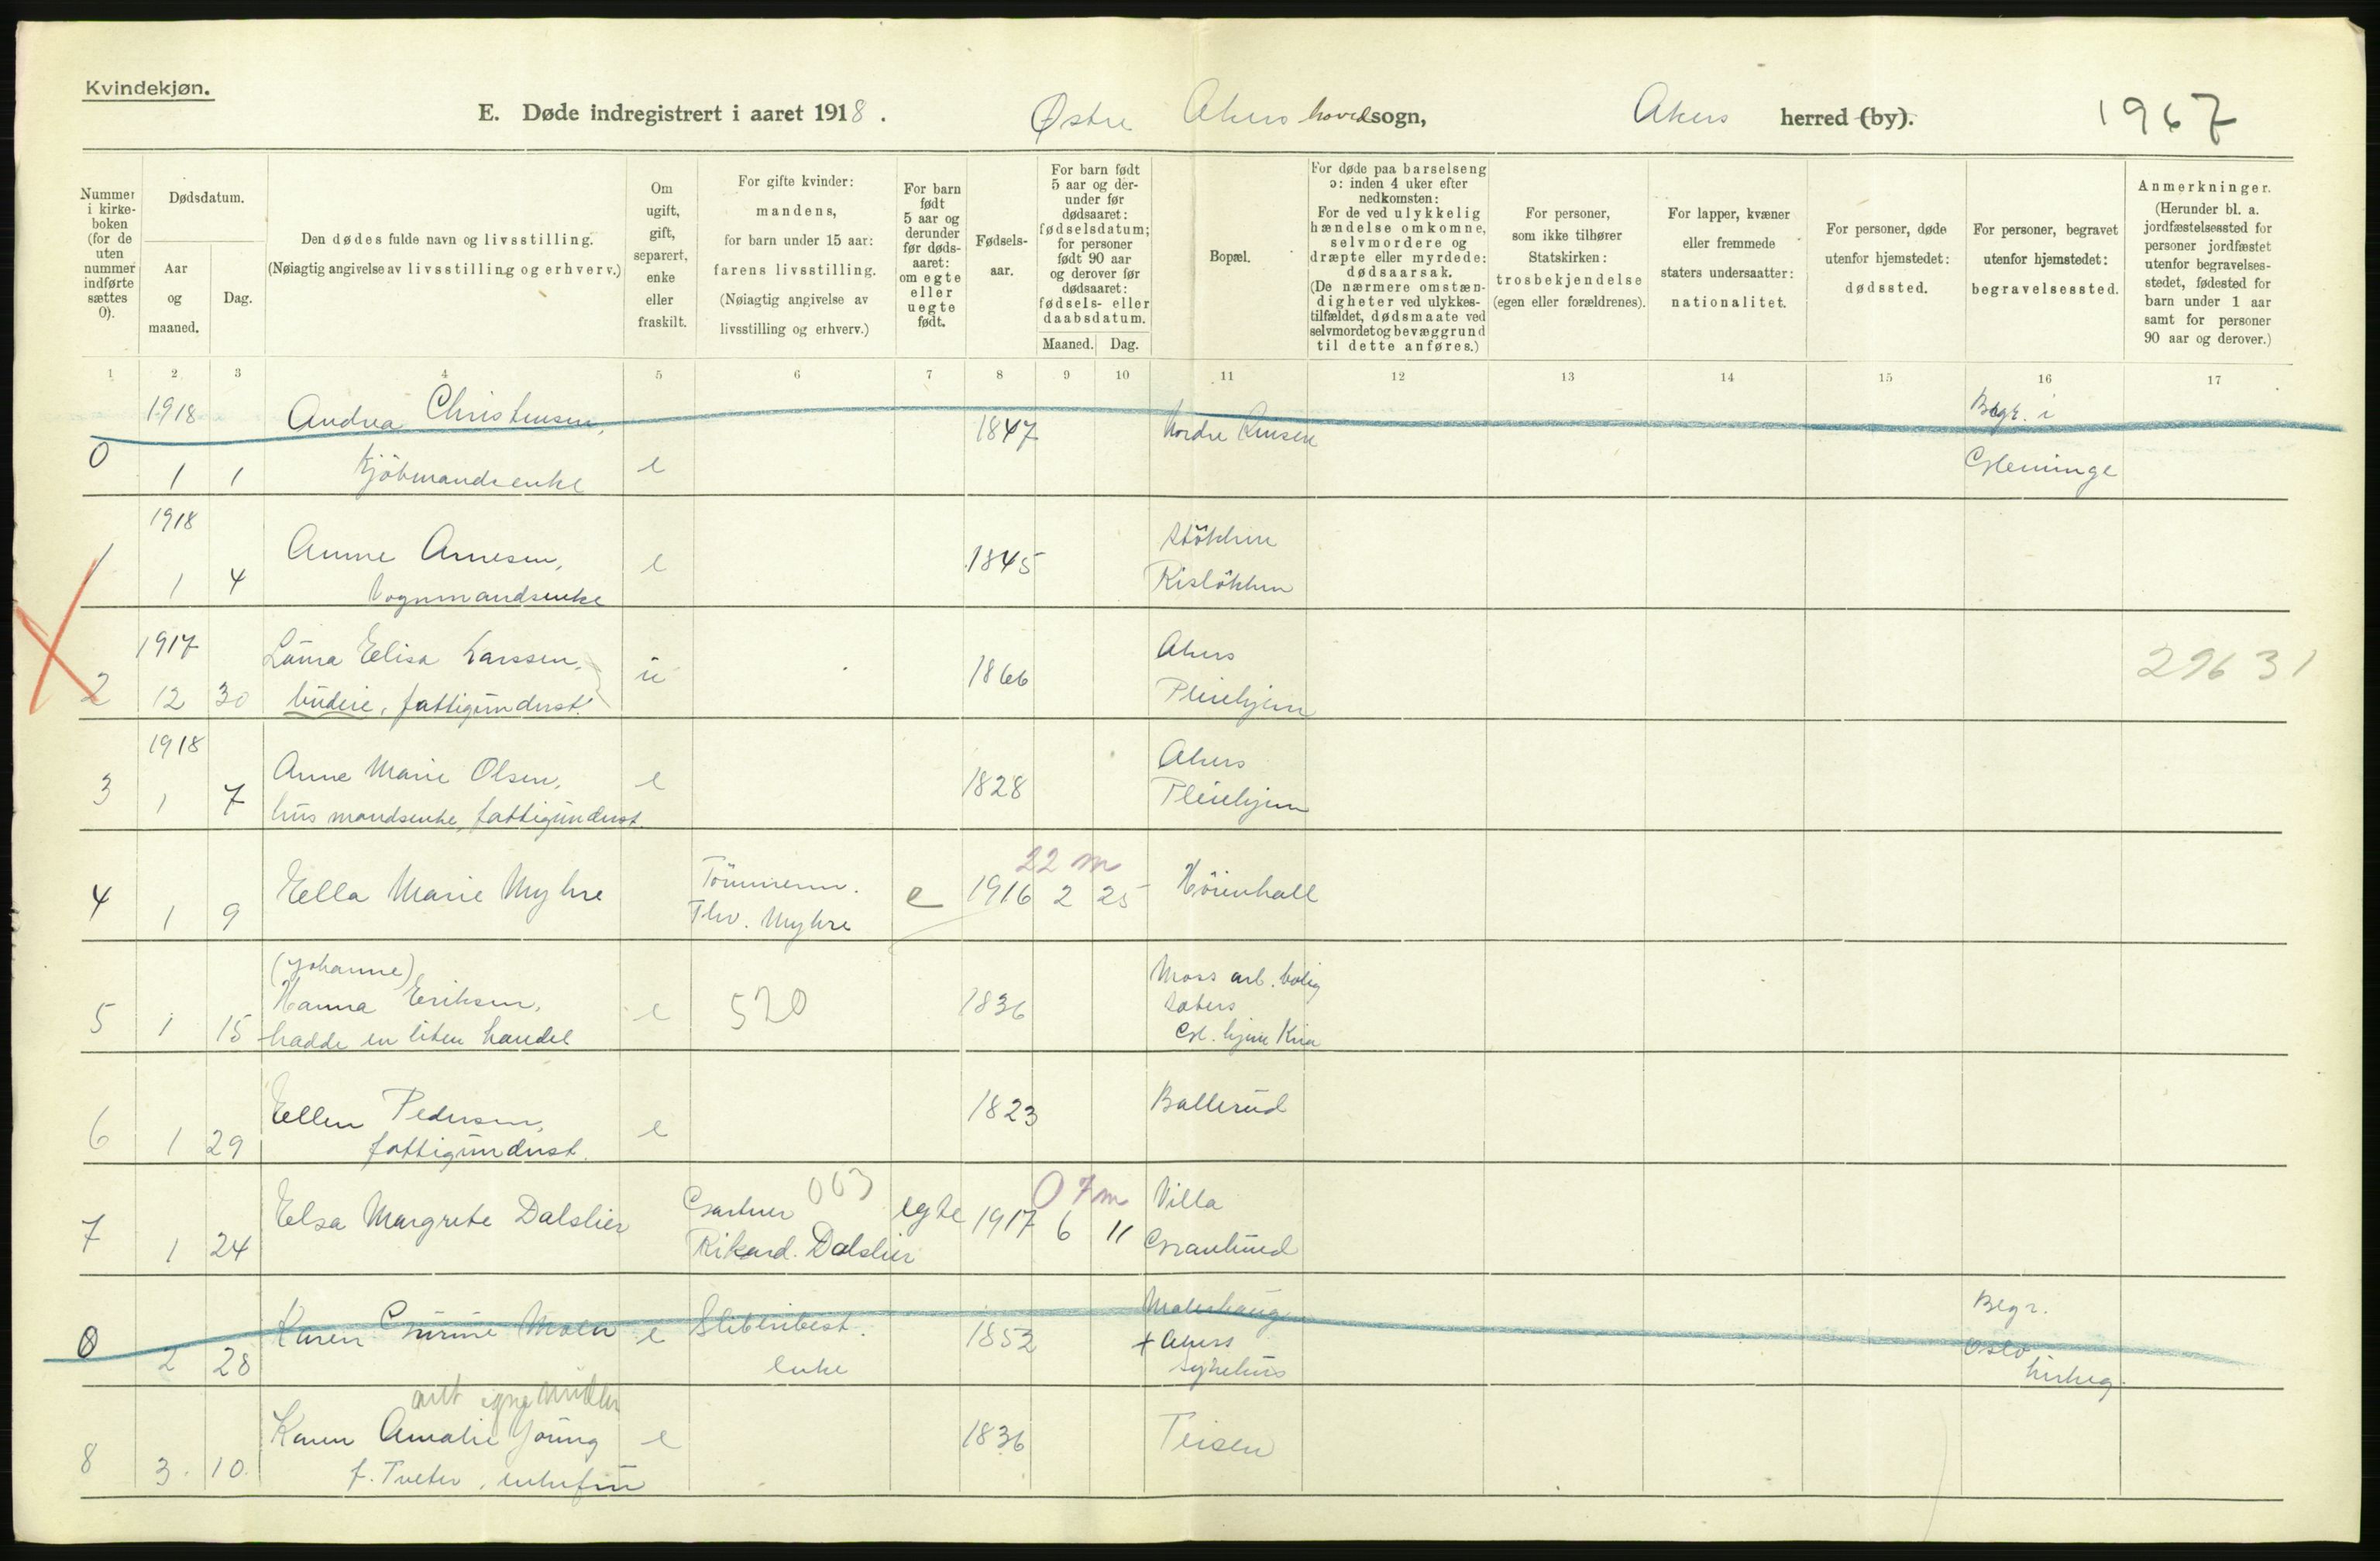 Kvindekjøn.
E. Døde indregistrert i aaret 1918. Østre Akers hovedsogn, Akers herred (by). 1967
Nummer i kirkeboken (for de uten nummer indførte sættes 0).
Dødsdatum.
Aar og maaned.
Dag.
Den dødes fulde navn og livsstilling.
(Nøiagtig angivelse av livsstilling og erhverv.)
Om ugift, gift, separert, enke eller fraskilt.
For gifte kvinder: mandens, for barn under 15 aar: farens livsstilling. (Nøiagtig angivelse av livsstilling og erhverv.)
For barn født 5 aar og derunder før dødsaaret: om egte eller uegte født.
Fødselsaar.
For barn født 5 aar og derunder før dødsaaret: fødselsdatum; for personer født 90 aar og derover før dødsaaret: fødsels- eller daabsdatum.
Maaned. Dag.
Bopæl.
For døde paa barselseng ɔ: inden 4 uker efter nedkomsten:
For de ved ulykkelig hændelse omkomne, selvmordere og dræpte eller myrdede: dødsaarsak.
(De nærmere omstændigheter ved ulykkestilfældet, dødsmaate ved selvmordet og bevæggrund til dette anføres.)
For personer, som ikke tilhører Statskirken: trosbekjendelse (egen eller forældrenes).
For lapper, kvæner eller fremmede staters undersaatter: nationalitet.
For personer, døde utenfor hjemstedet: dødssted.
For personer, begravet utenfor hjemstedet: begravelsessted.
Anmerkninger.
(Herunder bl. a. jordfæstelsessted for personer jordfæstet utenfor begravelsesstedet, fødested for barn under 1 aar samt for personer 90 aar og derover.)
1 2 3 4 5 6 7 8 9 10 11 12 13 14 15 16 17
1918 Andrea Christensen, 1847 Nordre Begr. i
0 1 1 Kjöbmandsenke e Glemminge
1918
1 1 4 Anne Arnesen, e 1845
Vognmandsenke Risløkken
1917 Laura Elisa Larssen, u 1866 Akers 29631
2 12 30 budeie, fattigunderst. Pleiehjem
1918
3 1 7 Anne Marie Olsen, e 1828 Akers
husmandsenke, fattigunderst. Pleiehjem
22 m
4 1 9 Ella Marie Myhre Tömmerm. e 1916 2 25 Höienhall
Thv. Myhre
(Johanne)
5 1 15 Hanna Eriksen, e 520 1836 Moss arb. bolig
hadde en liten handel
6 1 29 Ellen Pedersen, e 1823 Ballerud
fattigunderst.
003 07m
7 1 24 Elsa Margrete Dalslier Gartner egte 1917 6 11 Villa
Rikard Dalslier Granlund
0 2 28 Karen Moen e 1852 Malerhaug Begr.
enke + Akers Oslo
sykehus kirkeg.
egne midler
8 3 10 Karen Amalie Young e 1836 Teisen
f. Tveter, enkefru